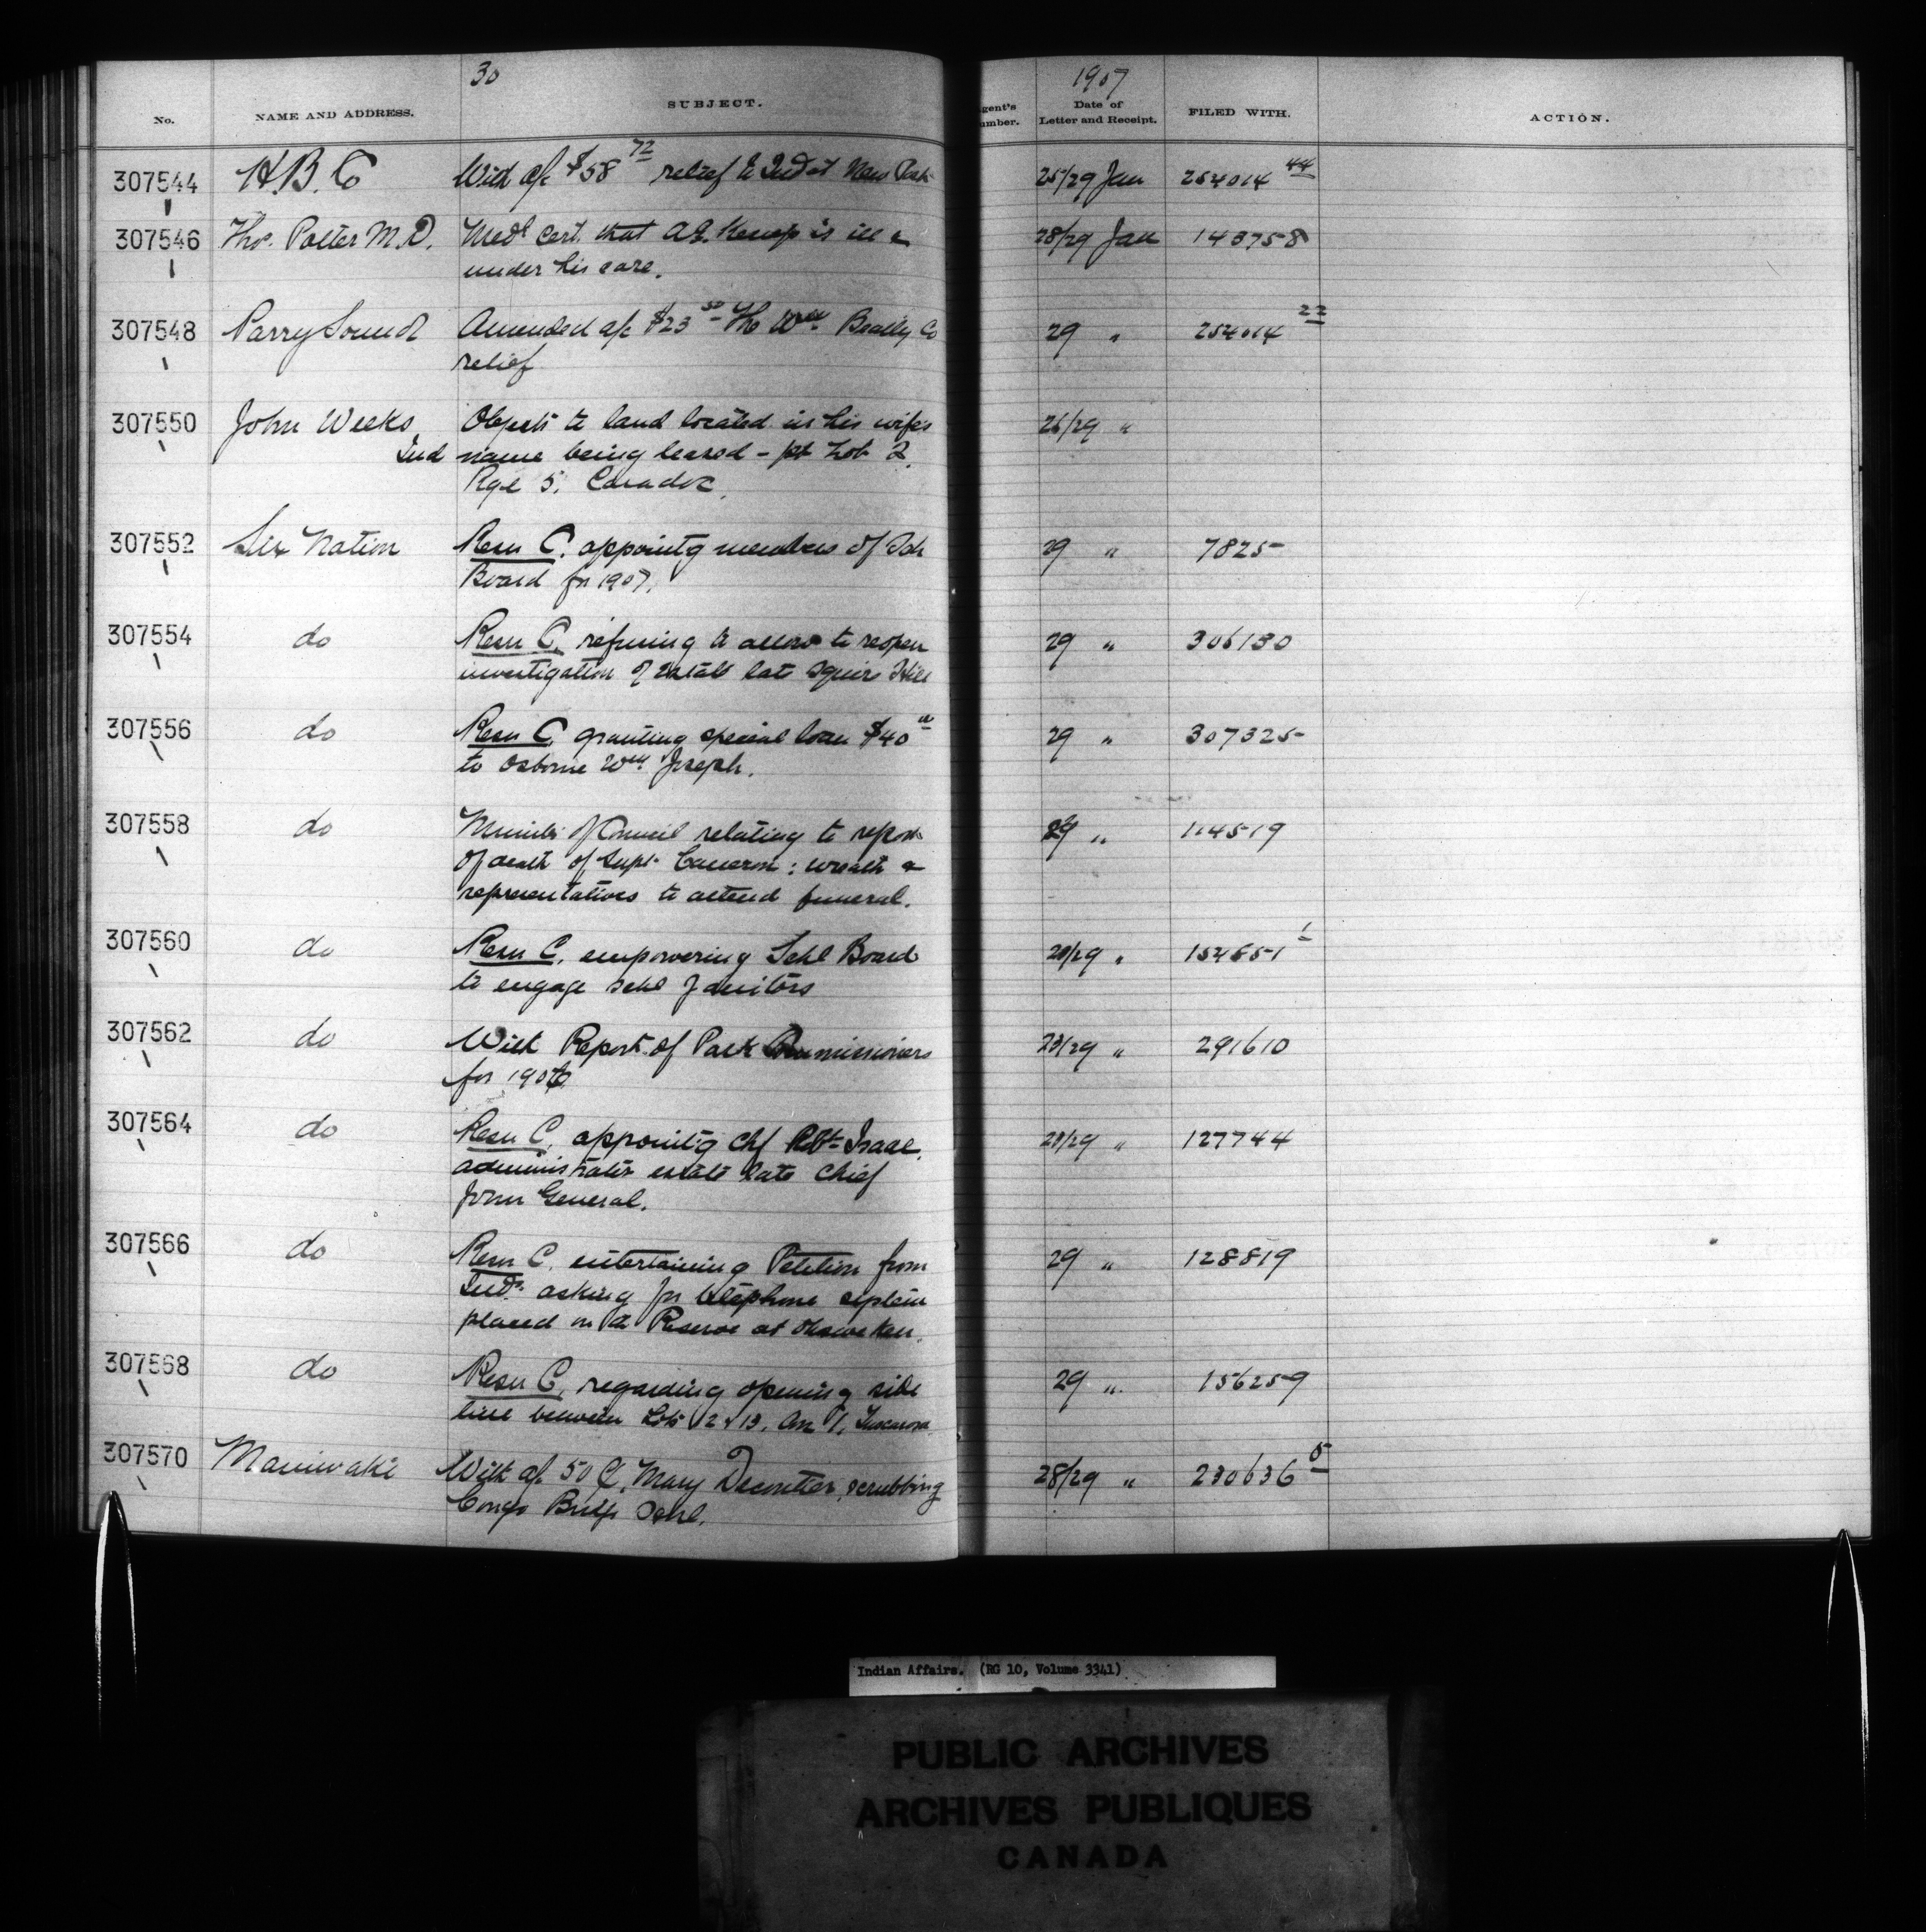 30
1907
No. NAME AND ADDRESS. SUBJECT. gent's umber. Date of Letter and Receipt. FILED WITH. ACTION.
307544 H.B. Co With a/c $58 72 relief to Ind at New Post 25/29 Jan 254014 44
307546 Thos. Potter M.D. Medl Cert. that A.E. Kemp is ill & 28/29 Jan 143758
under his care.
307548 Parry Sound Amended a/c $23 50 The Wm Beatty Co 29 " 254014 22
relief
307550 John Weeks Objects to land located in his wife's 26/29 "
Ind name being leased - pt Lot 2,
Rge 5, Caradoc.
307552 Six Nation Resn C. appointg members of Sch 29 " 7825
Board for 1907.
307554 do Resn C. refusing to allow to reopen 29 " 306130
investigation of estate late Squire Hill
307556 do Resn C. granting special loan $40 00 29 " 307325
to Osborne Wm Joseph.
307558 do Minutes of Council relating to report 29 " 114519
of death of Supt. Cameron; wreath &
representatives to attend funeral.
307560 do Resn C. empowering Schl Board 29 " 154651 1
to engage schl Janitors
307562 do With Report of Park Commissioners 23/29 " 291610
for 1906
307564 do Resn C. appointg Chf Robt Isaac 23/29 " 127744
administrator estate late Chief
John General.
307566 do Resn C. entertaining Petition from 29 " 128819
Inds. asking for telephone system
placed on the Reserve at Ohsweken.
307568 do Resn C. regarding opening side 29 " 156259
line between Lots 12 & 13, Con 1, Tuscarora
307570 Maniwaki With a/c 50 C. Mary Decontier, scrubbing 28/29 " 230636 5
Congo Bridge Schl.
Indian Affairs. (RG 10, Volume 3341)
PUBLIC ARCHIVES
ARCHIVES PUBLIQUES
CANADA